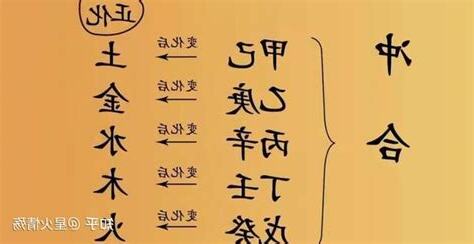 正化
冲合
甲己 变化后 土
乙庚 变化后 金
丙辛 变化后 水
丁壬 变化后 木
戊癸 变化后 火
知乎 @星火情殇